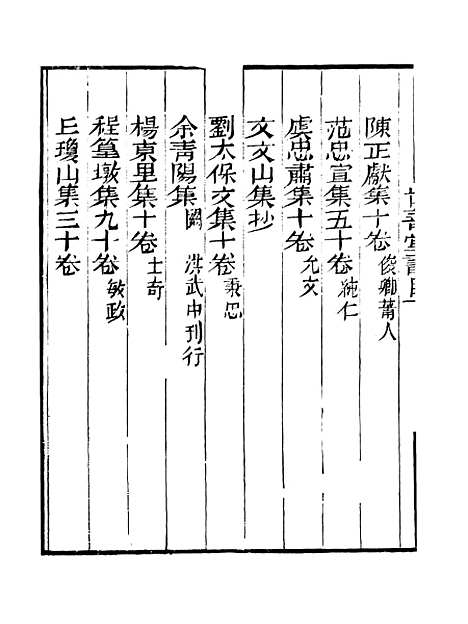 陳正獻集十卷 俊卿莆人
范忠宣集五十卷 純仁
虞忠肅集十卷 允文
文文山集抄
劉太保文集十卷 秉忠
余青陽集 闕 洪武中刊行
楊東里集十卷 士奇
程篁墩集九十卷 敏政
丘瓊山集三十卷